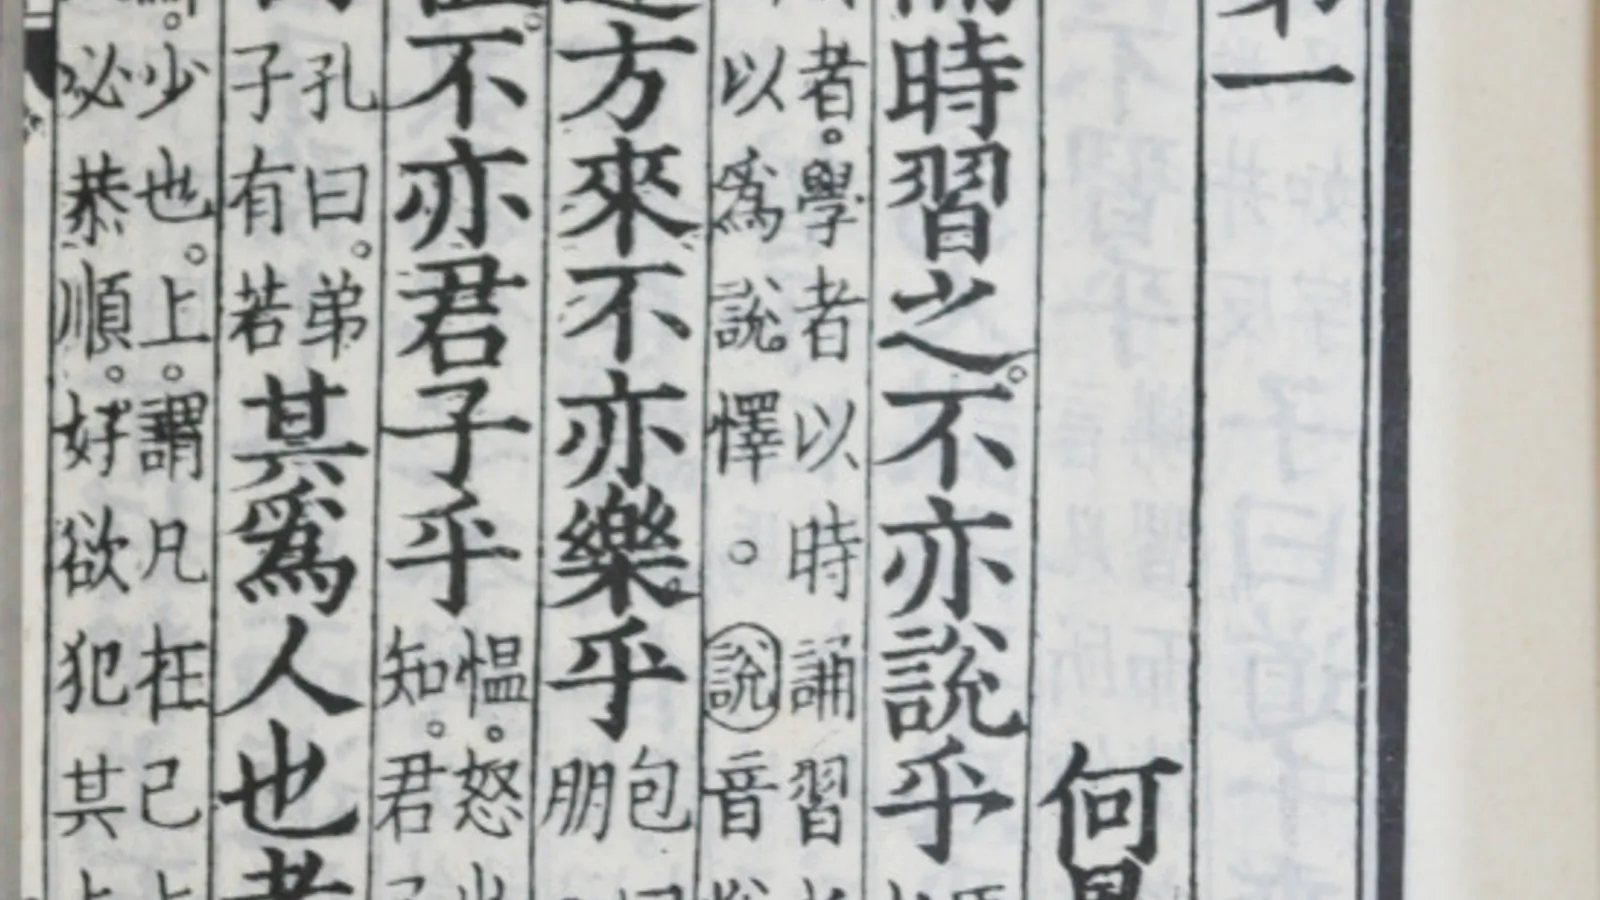 第一
何
而時習之。不亦說乎
者。學者以時誦習
以爲說。懌。說音
方來不亦樂。乎
包
朋
不亦君子乎
慍。怒
知。君
孔曰。弟
子有若
其爲人也者
少也。上。謂凡在己
必恭順。好欲犯其